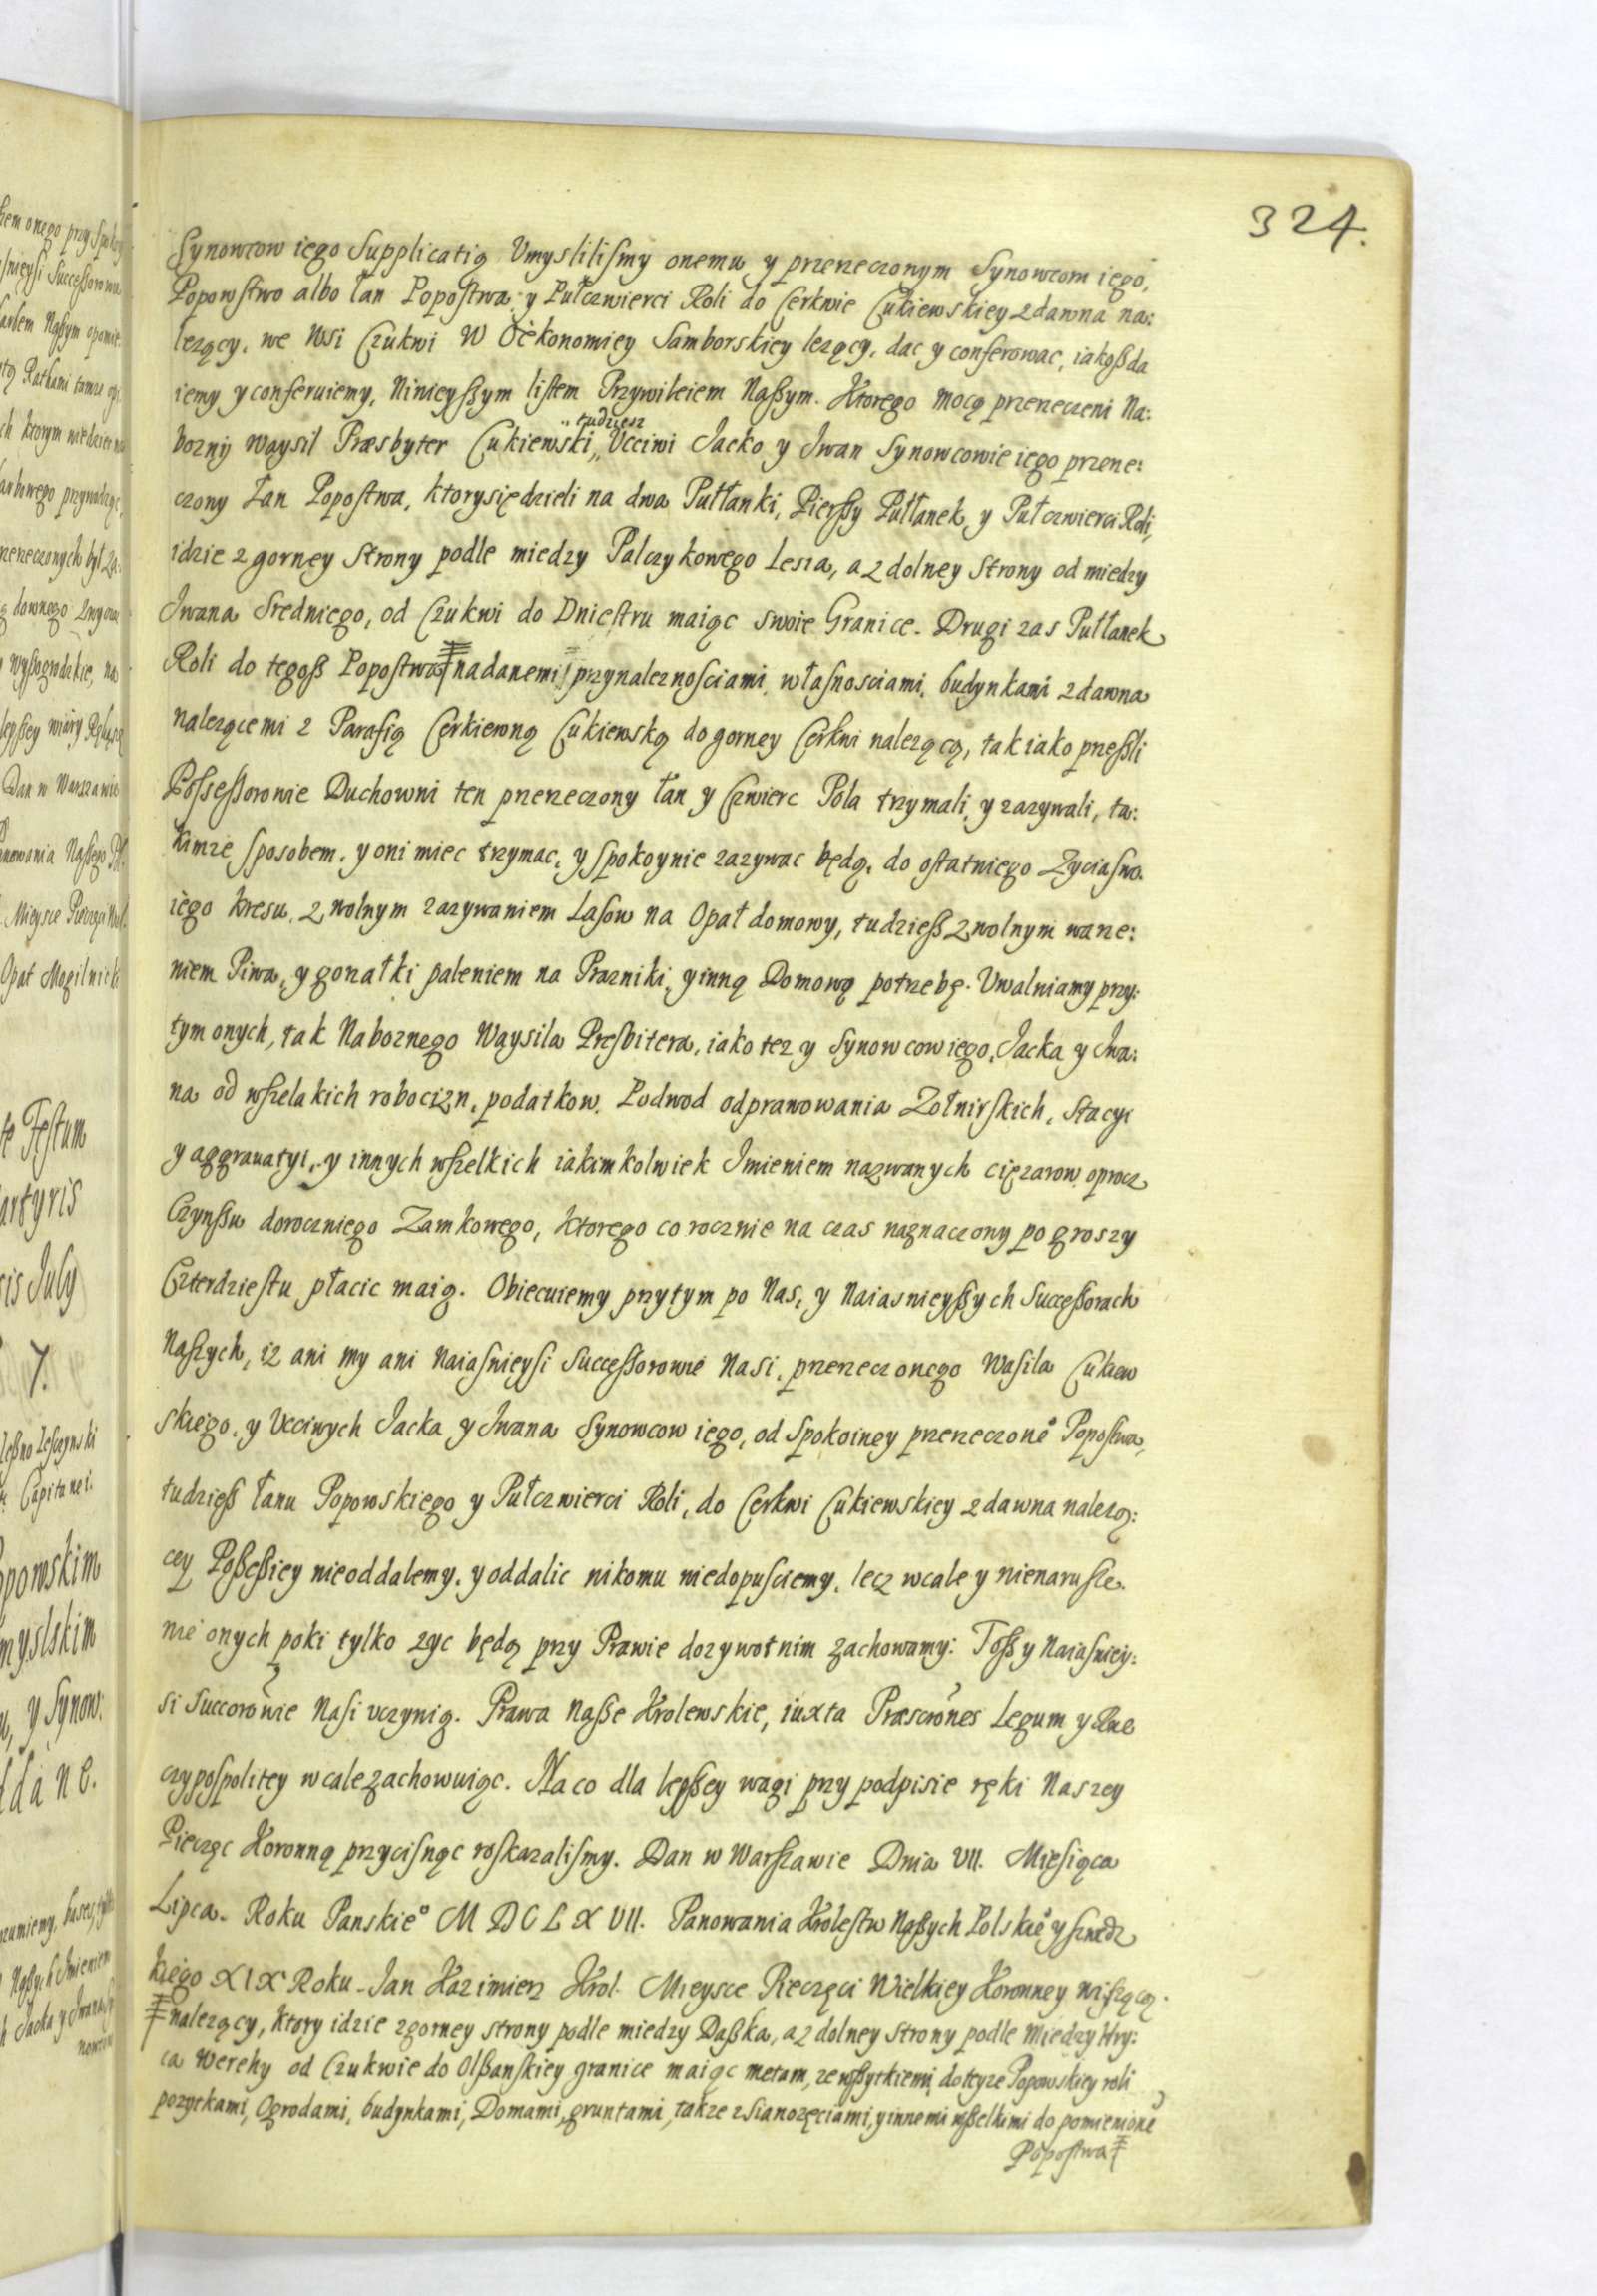 324.
Synowcow iego Supplicatią Vmyslilismy onemu y przerzeczonym Synowcom iego,
Popowstwo albo łan Popostwa y Pułczwierci Roli do Cerkwie Cukiewskiey zdawna na:
lezący, we Wsi Czukwi W Oekonomiey Samborskiey lezący, dac y conferowac, iakoßda
iemy y conferuiemy, Ninieyßym listem Przywileiem Naßym. Ktorego mocą przerzeczeni Na:
bozny Waysil Præsbyter Cukiewski, tudziesz Vcciwi Jacko y Jwan Synowcowie iego przerze:
czony Łan Popostwa, ktory się dzieli na dwa Pułłanki, Pierßy Pułłanek, y Pułczwierci Roli,
idzie z gorney Strony podle miedzy Palczykowego Lesza, a z dolney Strony od miedzy
Jwana Sredniego, od Czukwi do Dniestru maiąc swoie Granice. Drugi zas Pułłanek
Roli do tegoß Popostwa nadanemi przynaleznosciami, własnosciami, budynkami zdawna
nalezącemi z Parafią Cerkiewną Cukiewską do gorney Cerkwi nalezącą, tak iako przeßli
Possessorowie Duchowni ten przerzeczony łan y Czwierc Pola trzymali, y zazywali, ta:
kimze sposobem, y oni miec trzymac, y spokoynie zazywac będą, do ostatniego Zycia swo
iego kresu, z wolnym zazywaniem Lasow na Opał domowy, tudzieß z wolnym warze:
niem Piwa, y gorzałki paleniem na Prazniki, y inną Domową potrzebę. Vwalniamy przy:
tym onych, tak Naboznego Waysila Presbitera, iako tez y Synowcow iego, Jacka y Jwa:
na od wszelakich robocizn, podatkow, Podwod odprawowania Zołnirskich, Stacyi
y aggrauatyi, y innych wszelkich iakimkolwiek Jmieniem nazwanych cięzarow, oprocz
Czynßu doroczniego Zamkowego, ktorego corocznie na czas naznaczony po groszy
Czterdziestu płacic maią. Obiecuiemy przytym po Nas, y Naiasnieyßych Succeßorach
Naszych, iz ani my ani Naiasnieysi Succeßorowie Nasi, przerzeczonego Wasila Cukiew
skiego, y Vcciwych Jacka y Jwana Synowcow iego, od Spokoiney przerzeczone° Popostwa,
tudzieß łanu Popowskiego y Pułczwierci Roli, do Cerkwi Cukiewskiey zdawna nalezą:
cey Poßeßiey nieoddalemy, y oddalic nikomu niedopusciemy, lecz wcale y nienarusze
nie onych poki tylko zyc będą przy Prawie dozywotnim zachowamy: Toß y Naiasniey:
si Succorowie Nasi vczynią. Prawa Naße Krolewskie, iuxta Præscrones Legum y Rze
czypospolitey wcale zachowuiąc. Na co dla lepßey wagi przy podpisie ręki Naszey
Pieczęc Koronną przycisnąc roskazalismy. Dan w Warszawie Dnia VII. Miesiąca
Lipca. Roku Panskie° M DC LX VII. Panowania Krolestw Naßych Polskie° y szwedz
kiego XIX Roku. Jan Kazimierz Krol. Mieysce Pieczęci Wielkiey Koronney wiszącey.
nalezący, ktory idzie z gorney strony podle miedzy Daßka, a z dolney strony podle miedzy Hry:
ca Werehy od Czukwie do Olßanskiey granice maiąc metam, ze wßytkiemi do teyze Popowskiey roli
pozytkami, Ogrodami, budynkami, Domami, gruntami, takze z sianozęciami, y innemi wßelkimi do pomienione°
Popostwa